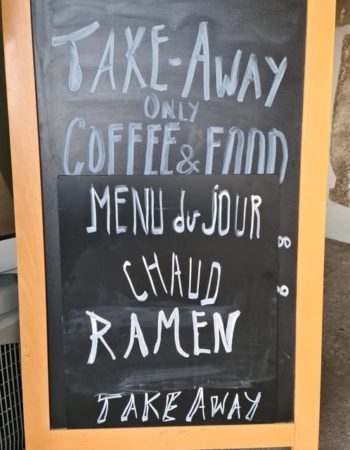 TAKE-AWAY
ONLY
COFFEE & FOOD
MENU du JOUR
CHAUD
RAMEN
TAKE AWAY